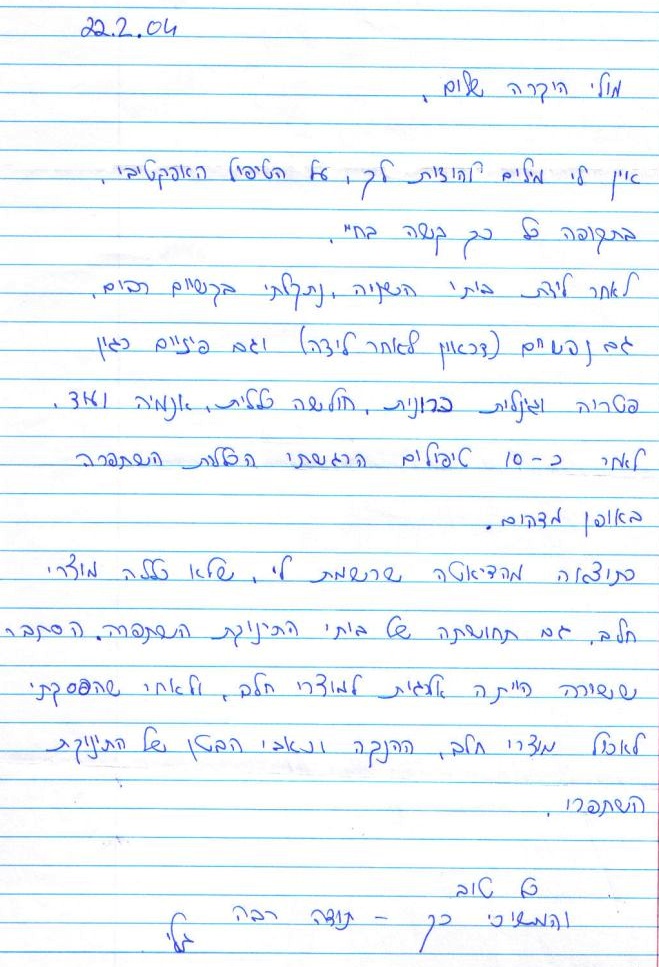 22.2.04
מולי היקרה שלום,
אין לי מילים להודות לך, על הטיפול האפקטיבי,
בתקופה כל כך קשה בחיי.
לאחר לידת ביתי השנייה, נתקלתי בקשיים רבים,
גם נפשיים (דכאון לאחר לידה) וגם פיזיים כגון
פטריה וגינלית כרונית, חולשה כללית, אנמיה ועוד.
לאחר כ-10 טיפולים הרגשתי הכללת השתפרה
באופן מדהים.
כתוצאה מהדיאטה שרשמת לי, שלא כללה מוצרי
חלב, גם תחושתה של ביתי התינוקת השתפרה. הסתבר
ששירה הייתה אלרגית למוצרי חלב, ולאחר שהפסקתי
לאכול מוצרי חלב, ההנקה וכאבי הבטן של התינוקת
השתפרו.
כל טוב
והמשיכי כך - תודה רבה
גלי